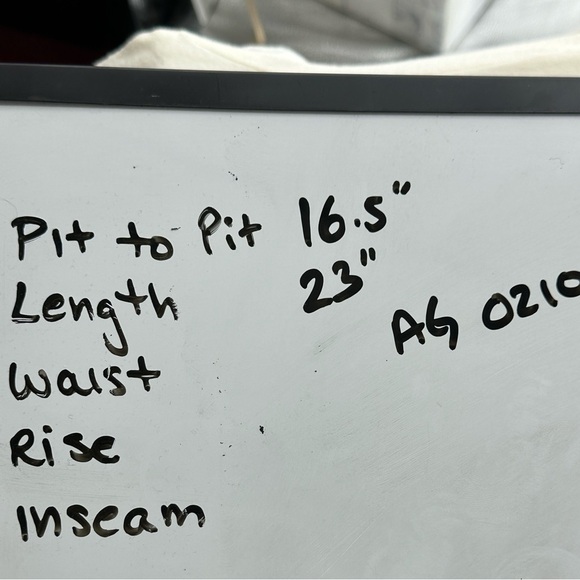 Pit to Pit 16.5"
Length 23"
AG 0210
Waist
Rise
Inseam